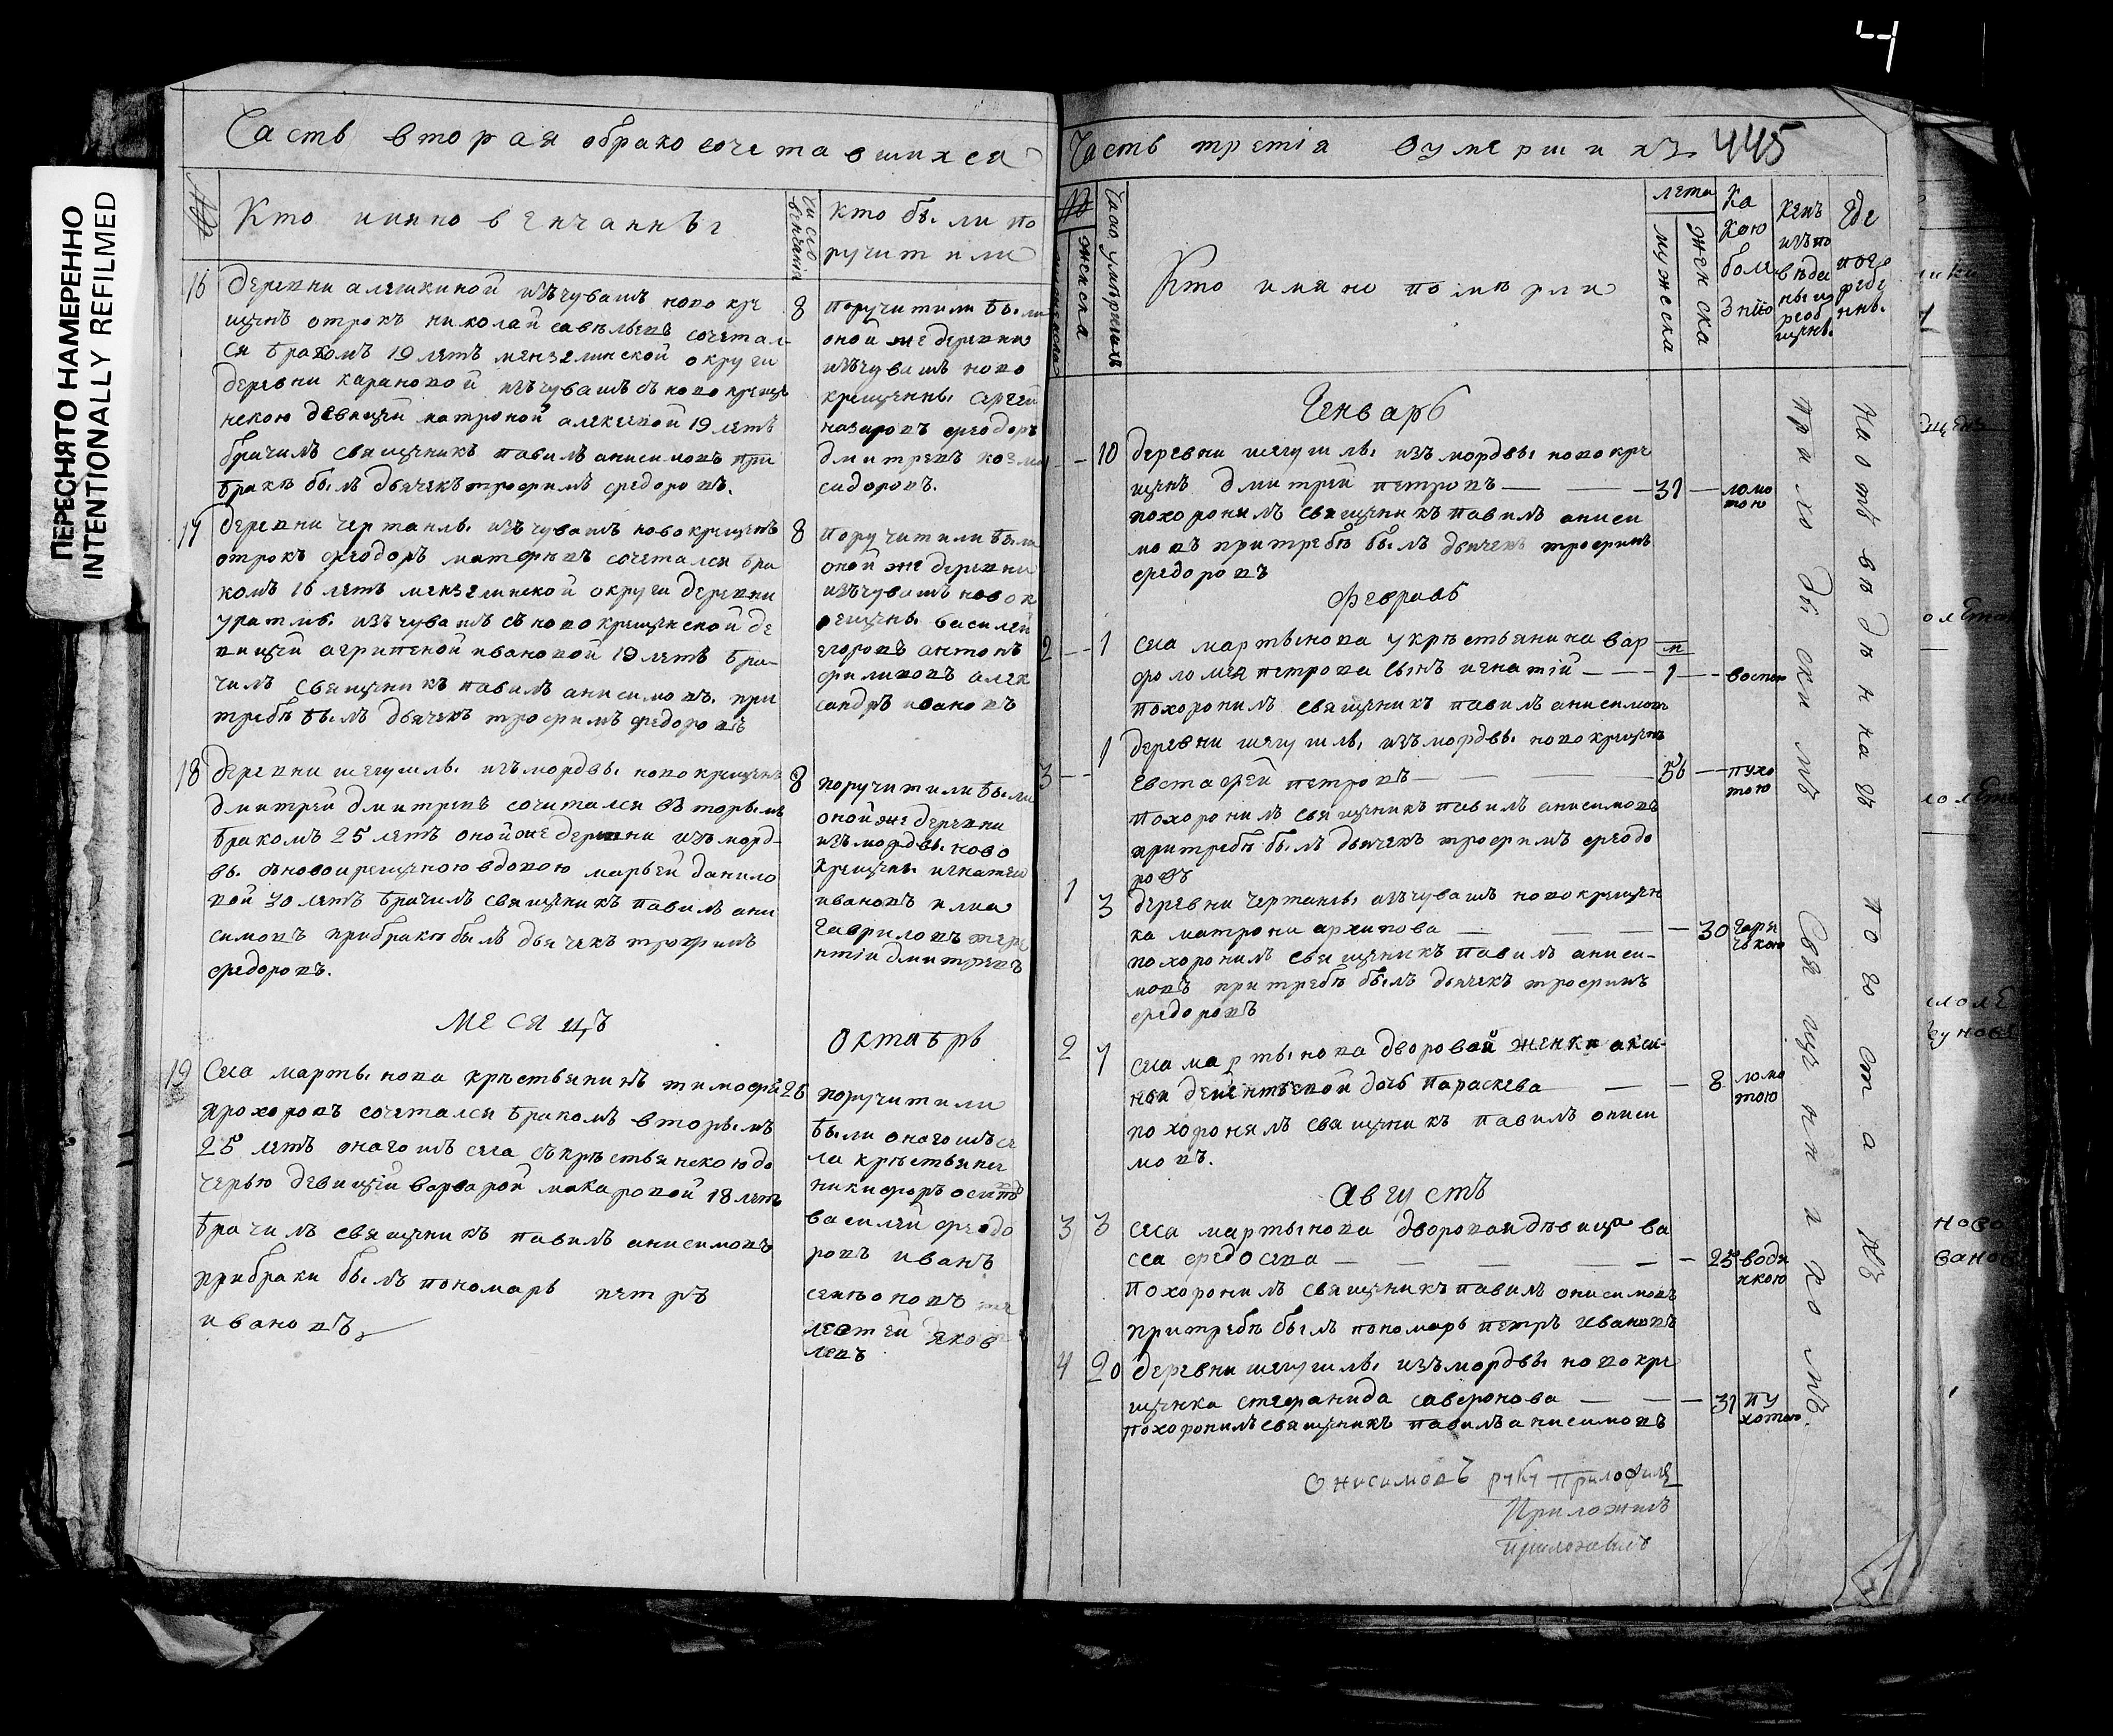 4
ПЕРЕСНЯТО НАМЕРЕННО
INTENTIONALLY REFILMED
Часть вторая обрако сочетавшихся
№
Кто имяно венчанны
Число венчания
кто были по
ручители
16
деревни алешкиной изъ чувашъ ново кре
щенъ отрокъ николай савельевъ сочетал
ся бракомъ 19 летъ мензелинской округи
деревни карановой изъ чувашъ съ новокреще
нскою девицей матроной алексевой 19 летъ
брачилъ священникъ павилъ анисимовъ при
браке былъ дьячекъ трофимъ федоровъ.
8
поручители были
оной же деревни
изъ чувашъ ново
крещенны сергей
назаровъ феодоръ
дмитревъ козма
сидоровъ.
17
деревни чертанлы изъ чувашъ новокрещенъ
отрокъ феодоръ матфевъ сочетался бра
комъ 16 летъ мензелинской округи деревни
уратмы изъ чувашъ съ новокрещенской де
вицей агрипеной ивановой 19 летъ бра-
чилъ священникъ павилъ анисимовъ при
требе былъ дьячекъ трофимъ федоровъ
8
поручители были
оной же деревни
изъ чувашъ новок
рещены василей
егоровъ антонъ
филиповъ алек
сандръ ивановъ
18
деревни шегушлы изъ мордвы новокрещенъ
дмитрей дмитревъ сочитался въторымъ
бракомъ 25 летъ оной же деревни изъ морд-
вы с новокрещеною вдовою марьей данило
вой 30 летъ брачилъ священникъ павилъ ани
симовъ прибраке былъ дьячекъ трофимъ
федоровъ.
8
поручители были
оной же деревни
изъ мордвы ново
крещены игнатей
ивановъ илиа
гавриловъ тере
нтiй дмитревъ
Месяцъ
октябрь
19
Села мартынова крестьянинъ тимофей
прохоровъ сочетался бракомъ вторымъ
25 летъ оного шъ села съ крестьянскою до
черью девицей варварой макаровой 18 летъ
брачилъ священникъ павилъ анисимовъ
прибраки былъ пономарь петръ
ивановъ
26
поручители
были оного шъ се
ла крестьяни
никифоръ осиповъ
василей феодо
ровъ иванъ
семионовъ
яков
левъ
Часть третiя оумершихъ
445
№
мужеска
женска
Число умершихъ
Кто имяно помърли
лета
мужеска
женска
Ка
кою
боле
знiю
кемъ
изъпо
веды
ны и п
реоб
щены.
где
погре
бе
ны.
Генварь
10
деревни шегушлы изъ мордвы новокре
щенъ дмитрей петровъ — 31 — ломо
тою
похоронилъ священникъ павилъ аниси
мовъ притребе былъ дьячекъ трофимъ
федоровъ
Февраль
2 1
села мартынова у крестьянина вар
фоломея петрова сынъ игнатiй — 1 — воспою
похоронилъ священникъ павилъ анисимовъ
3 1
деревни шегушлы изъ мордвы новокрещенъ
евстафей петровъ — 56 — пухо
тою
похоронилъ священникъ павилъ анисимовъ
притребе былъ дьячекъ трофимъ феодо
ровъ
1 3
деревни чертанлы изъ чувашъ новокрещен
ка матрона архипова — 30 горя
чькою
похоронилъ священникъ павилъ аниси-
мовъ притребе былъ дьячекъ трофимъ
федоровъ
2 7
села мартынова дворовай женки акси-
ньи дементьевой дочь параскева — 8 ломо
тою
похоронялъ священникъ павилъ аниси
мовъ.
августъ
3 3
села мартынова дворовая девица ва
сса федосева — 25 водя
нкою
похоронилъ священникъ павилъ анисимовъ
притребе былъ пономарь петръ ивановъ
4 20
деревни шегушлы изъ мордвы новокре
щенка стефанида саверонова — 31 пу
хотою
похоронилъ священникъ павилъ анисимовъ
приходскимъ священникомъ.
на отведенназъ погостахъ
Онисимовъ руку приложилъ
Приложилъ
приложилъ